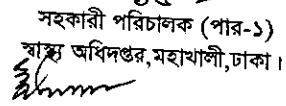 সহকারী পরিচালক (পার-১)
স্বাস্থ্য অধিদপ্তর,মহাখালী,ঢাকা।